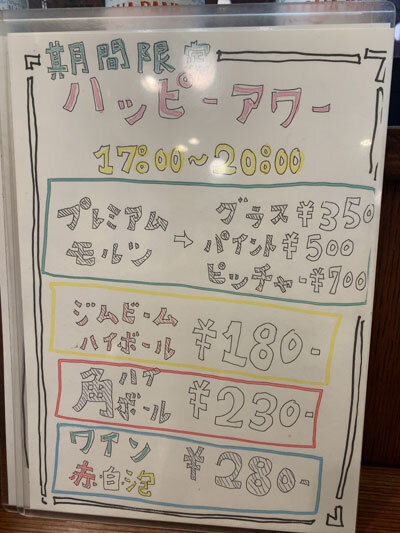 期間限定
ハッピーアワー
17:00~20:00
プレミアムモルツ → グラス ¥350
パイント ¥500
ピッチャー ¥700
ジムビームハイボール ¥180-
角ハイボール ¥230-
ワイン ¥280-
赤・白・泡